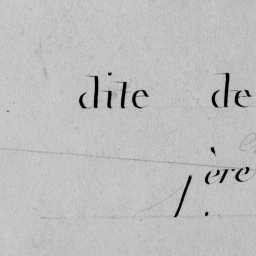 dite de
ère